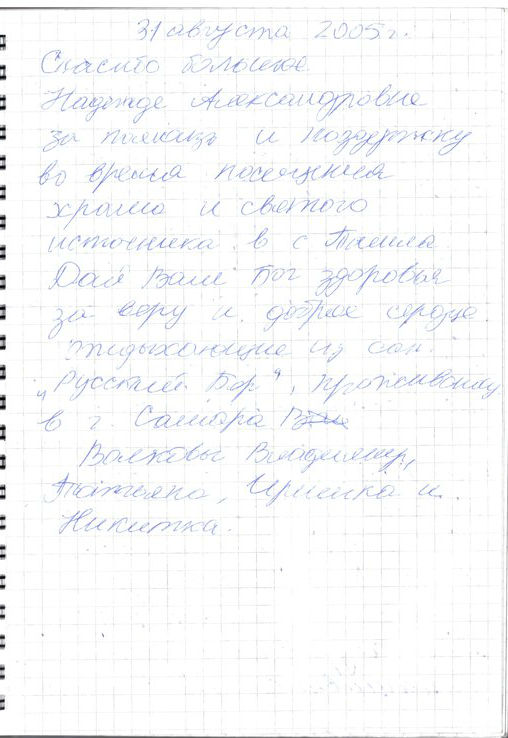 31 августа 2005 г.
Спасибо большое
Надежде Александровне
за показ и поддержку
во время посещения
храма и святого
источника в с. Ташла.
Дай Вам Бог здоровья
за веру и доброе сердце.
отдыхающие из сан.
"Русский Бор", проживающ
в г. Самара
Волковы Владимир,
Татьяна, Иринка и
Никитка.